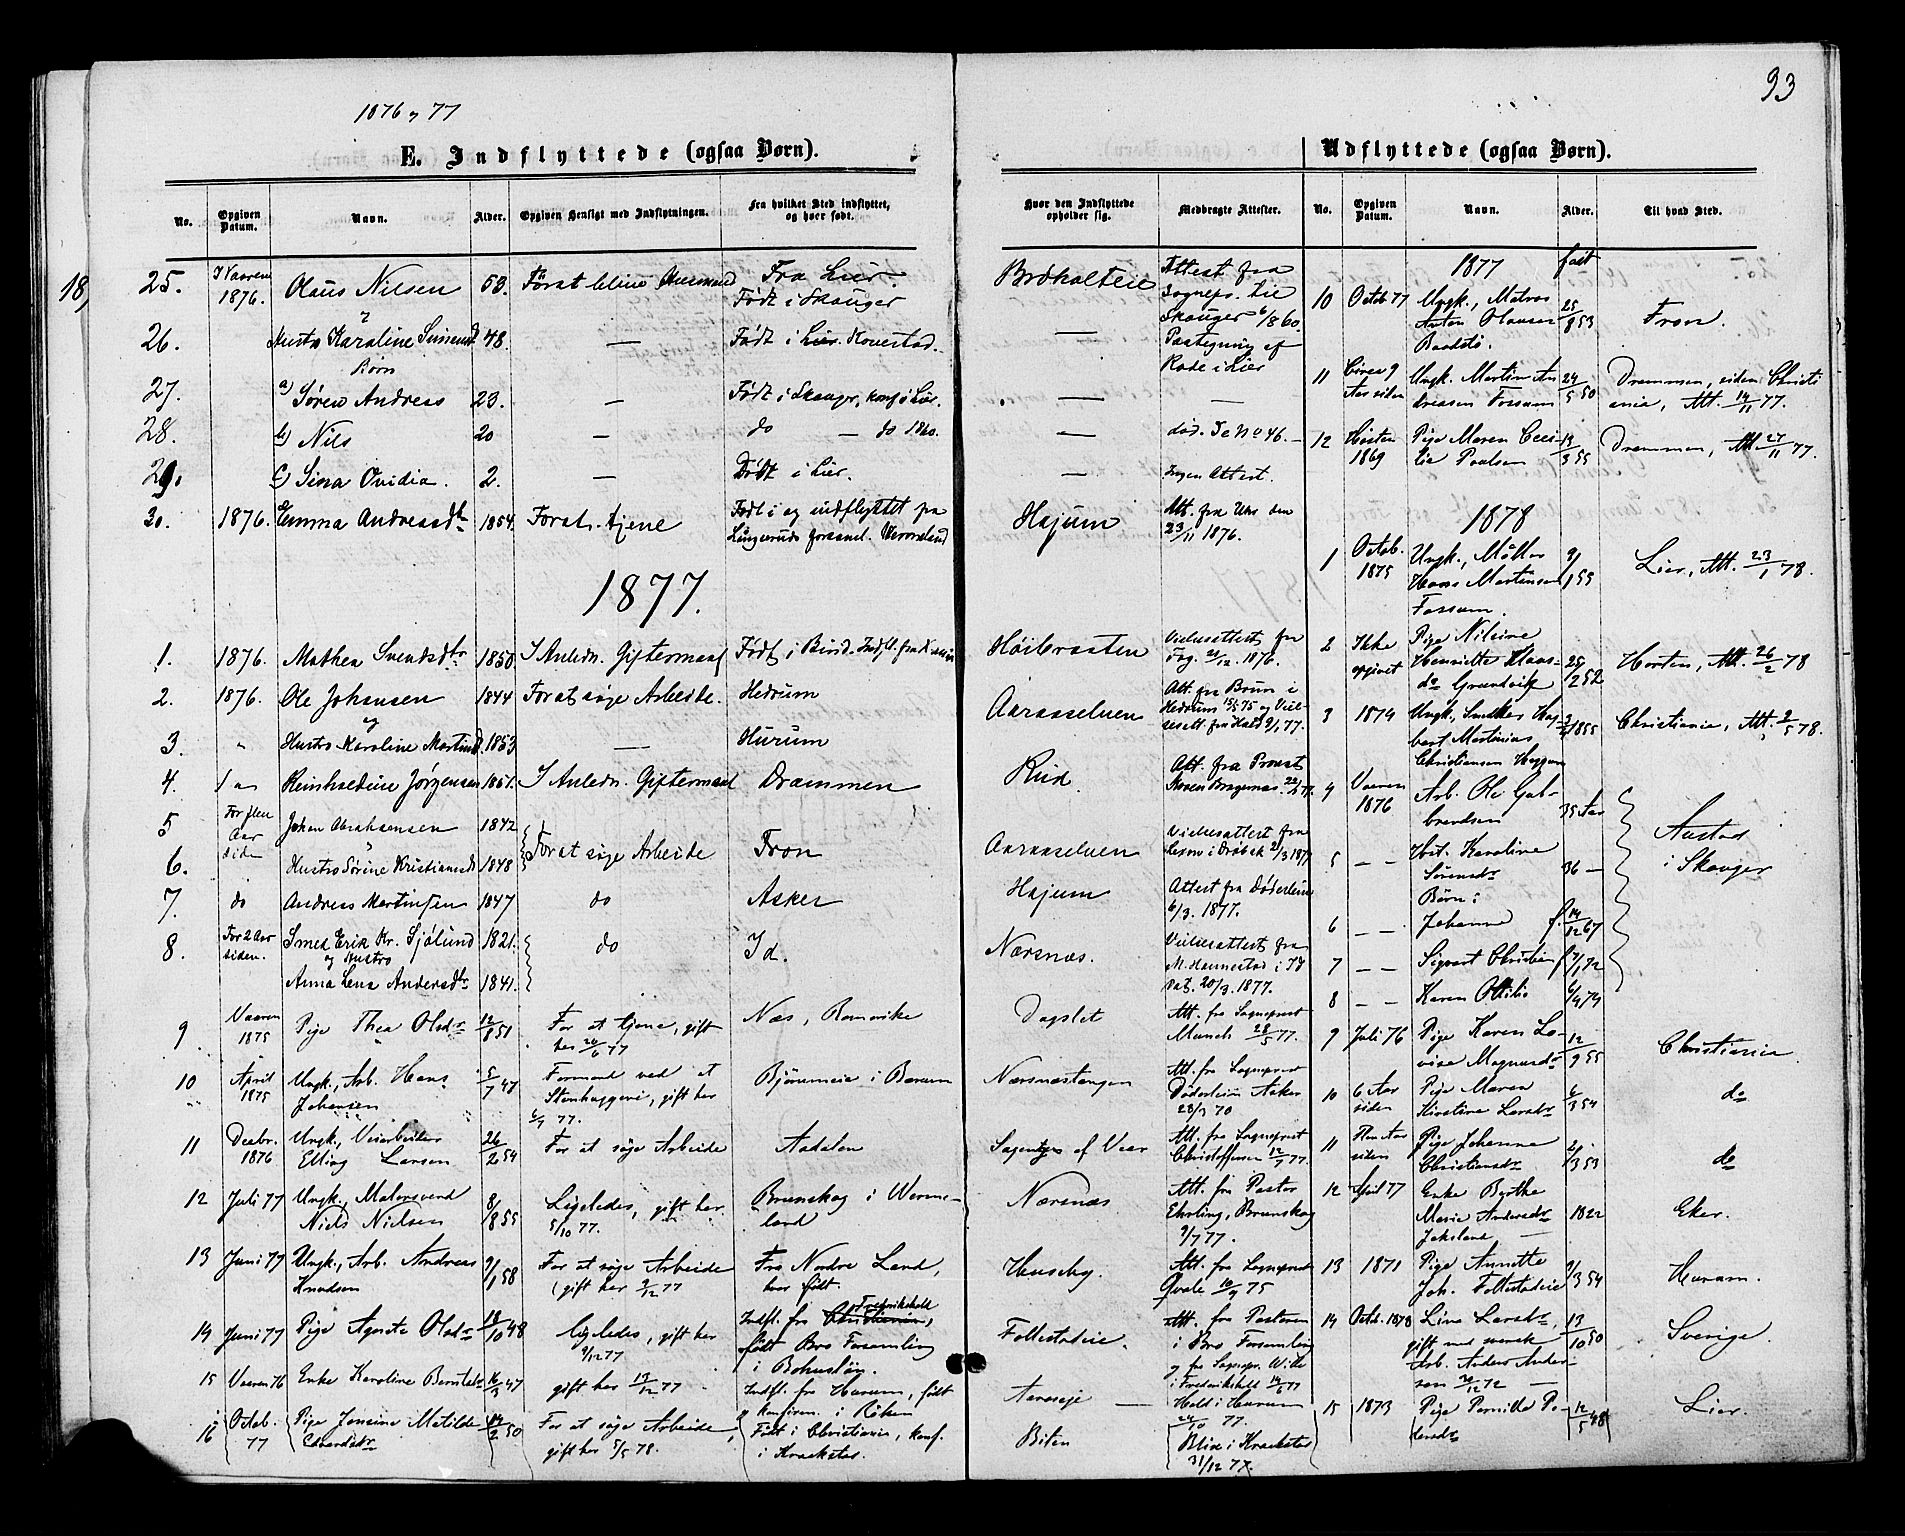 93
1876 og 77
E. Indflyttede (ogsaa Børn).
No. Opgiven Datum. Navn. Alder. Opgiven Hensigt med Indflytningen. Fra hvilket Sted indflyttet, og hvor født.
18,
25. I Vaaren 1876. Olaus Nilsen 53. For at blive Huusmand Fra Lier. Født i Skouger
26. Hustr. Karoline 48. — Født i Lier.
Børn
27. a) Søren Andreas 23. — Født i Skouger, konf. i Lier.
28. b) Nils 20 — do — do 1860.
29. c) Sina Ovidia. 2. — Født i Lier.
30. 1876. Emma Andreasdtr 1854. For at tjene Født i og indflyttet fra
1877.
1. 1876. Mathea Svendsdtr 1850. I Anledn. Giftermaal Født i
2. 1876. Ole Johansen 1844 For at søge Arbeide. Hedrum
og
3. " Hustr. Karoline 1853 — Hurum
4. Jørgensen 1851. I Anledn. Giftermaal Drammen
5 For flere Aar siden Johan 1842
6. Hustr. Sørine Kristiansd 1848 For at søge Arbeide Fron
7. do Andreas Martinsen 1847 do Asker
8. For 2 Aar siden. Smed Erik Kr. Sjølund 1821. do Id.
og Hustro
Anna Lena Andersdtr 1841.
9 Vaaren 1875 Pige Thea Olsdr 12/8 51 For at tjene, gift her 26/6 77 Næs, Romerike
10 April 1875 Ungk., Arb. Hans Johansen 5/7 47 Formand ved et Stenhuggeri, gift her 6/7 77. i Bærum
11 Decbr. 1876 Ungk., Veiarbeider Elling Larsen 26/2 54 For at søge Arbeide Aadalen
12 Juli 77 Ungk., Malersvend Niels Nielsen 8/8 55 Ligeledes, gift her 5/10 77. Brunskog i Wermeland
13 Juni 77 Ungk., Arb. Andreas Knudsen 9/1 58 For at søge Arbeide (gift her 9/12 77 Fra Nordre Land, hvor født.
14 Juni 77 Pige Agnete Olsdr 18/10 48 ligeledes, gift her 9/12 77 Indfl. fra Fredrikshald, født Bro Forsamling i Bohuslän.
15 Vaaren 76 Enke Karoline 47 gift her 13/12 77 Indfl. fra Hurum, født og konfirm. i Røken
16 Octob. 77 Pige Jensine Matilde Edvardsdr 50 For at søge Arbeide, gift her 5/5 78. Født i Christiania, konf. i Krackstad.
Hvor den Indflyttede opholder sig. Medbragte Attester.
Attest fra Sognepr. Lie Skouger 6/8 60.
— Paategning af Rode i Lier
— —
— død. Se No 46. —
— Ingen Attest.
Hajum Att. fra den 23/11 1876.
Høibraaten Vielsesattest fra 12. 1876.
Aaraaselven Att. fra Bruun i Hedrum
Rud Att. fra Provst
Aaraaselven Vielsesattest fra
Hajum Attest fra Døderlein 6/3. 1877.
Nærsnæs. Vielsesattest fra M. Hannestad i Id dat. 20/3. 1877.
Dagslet Att. fra Sognepræst Munch 28/5 77.
Nærsnæstangen Att. fra Sognepræst Døderlein Asker 70
af Vear Att. fra Sognepræst Christoffersen 12/7 77.
Nærsnæs Att. fra Pastor Brunskog 9/7 77.
Huseby. Att. fra Sognepræst Qvale 75
Follestadeie. Att. fra Pastoren i Bro Forsamling og fra Sognepr. Wille i Fredrikshald 14/6 77
Aareseje — Hald i Hurum 77.
Biten Blix i Krackstad 31/12 77.
Udflyttede (ogsaa Børn).
No. Opgiven Datum. Navn. Alder. Til hvad Sted.
1877 født
10 Octob 77 Ungk., Matros Anton Olausen 25/8 53 Fron.
11 Circa 9 Aar siden Ungk. Martin Andreasen Fossum 24/5 50 Drammen, siden Christiania, Att. 14/11 77.
12 Høsten 1869 Pige Maren Cecilie Paulsen 13/3 55 Drammen, Att. 27/11 77.
1878
1 Octob. 1875 Ungk., Møller Hans Martinsen Fossum. 9/1 55 Lier, Att. 23/1 78.
2 Ikke opgivet Pige Nilsine Henriette Klausdr Grundvik 25/2 52 Horten, Att. 26/2 78
3 1874 Ungk., Snedker Hagbart Martinius Christiansen Haggen 1855 Christiania, Att. 2/5 78.
4 Vaaren 1876 Arb. Ole Gulbrandsen 35 Aar
5 — — Hst. Karoline Sørensdr 36 — Austad i Skouger
Børn:
6 — — Johanne f. 14/12 67
7 — — Sigvart Christian f 7/1 72
8 — — Karen Otilie 6/4 74
9 Juli 76 Pige Karen Lovise Magnusdr 12/9 55 Christiania.
10 6 Aar siden Pige Maren Kirstine Larsdr 6/3 54 do
11 Flere Aar siden Pige Johanne Christiansdr 2/3 53 do
12 April 77 Enke Byrthe Marie Andersdr — 1822 Eker.
13 1871 Pige Annette Joh. Follestadeie 9/3 54 Hurum.
14 Octob. 1878 Lina Larsdr, gift med svensk Arb. Anders Andersen 72 — 13/10 50 Sverige.
15 1873 Pige Pernille Pedersdr 12/5 48 Lier.